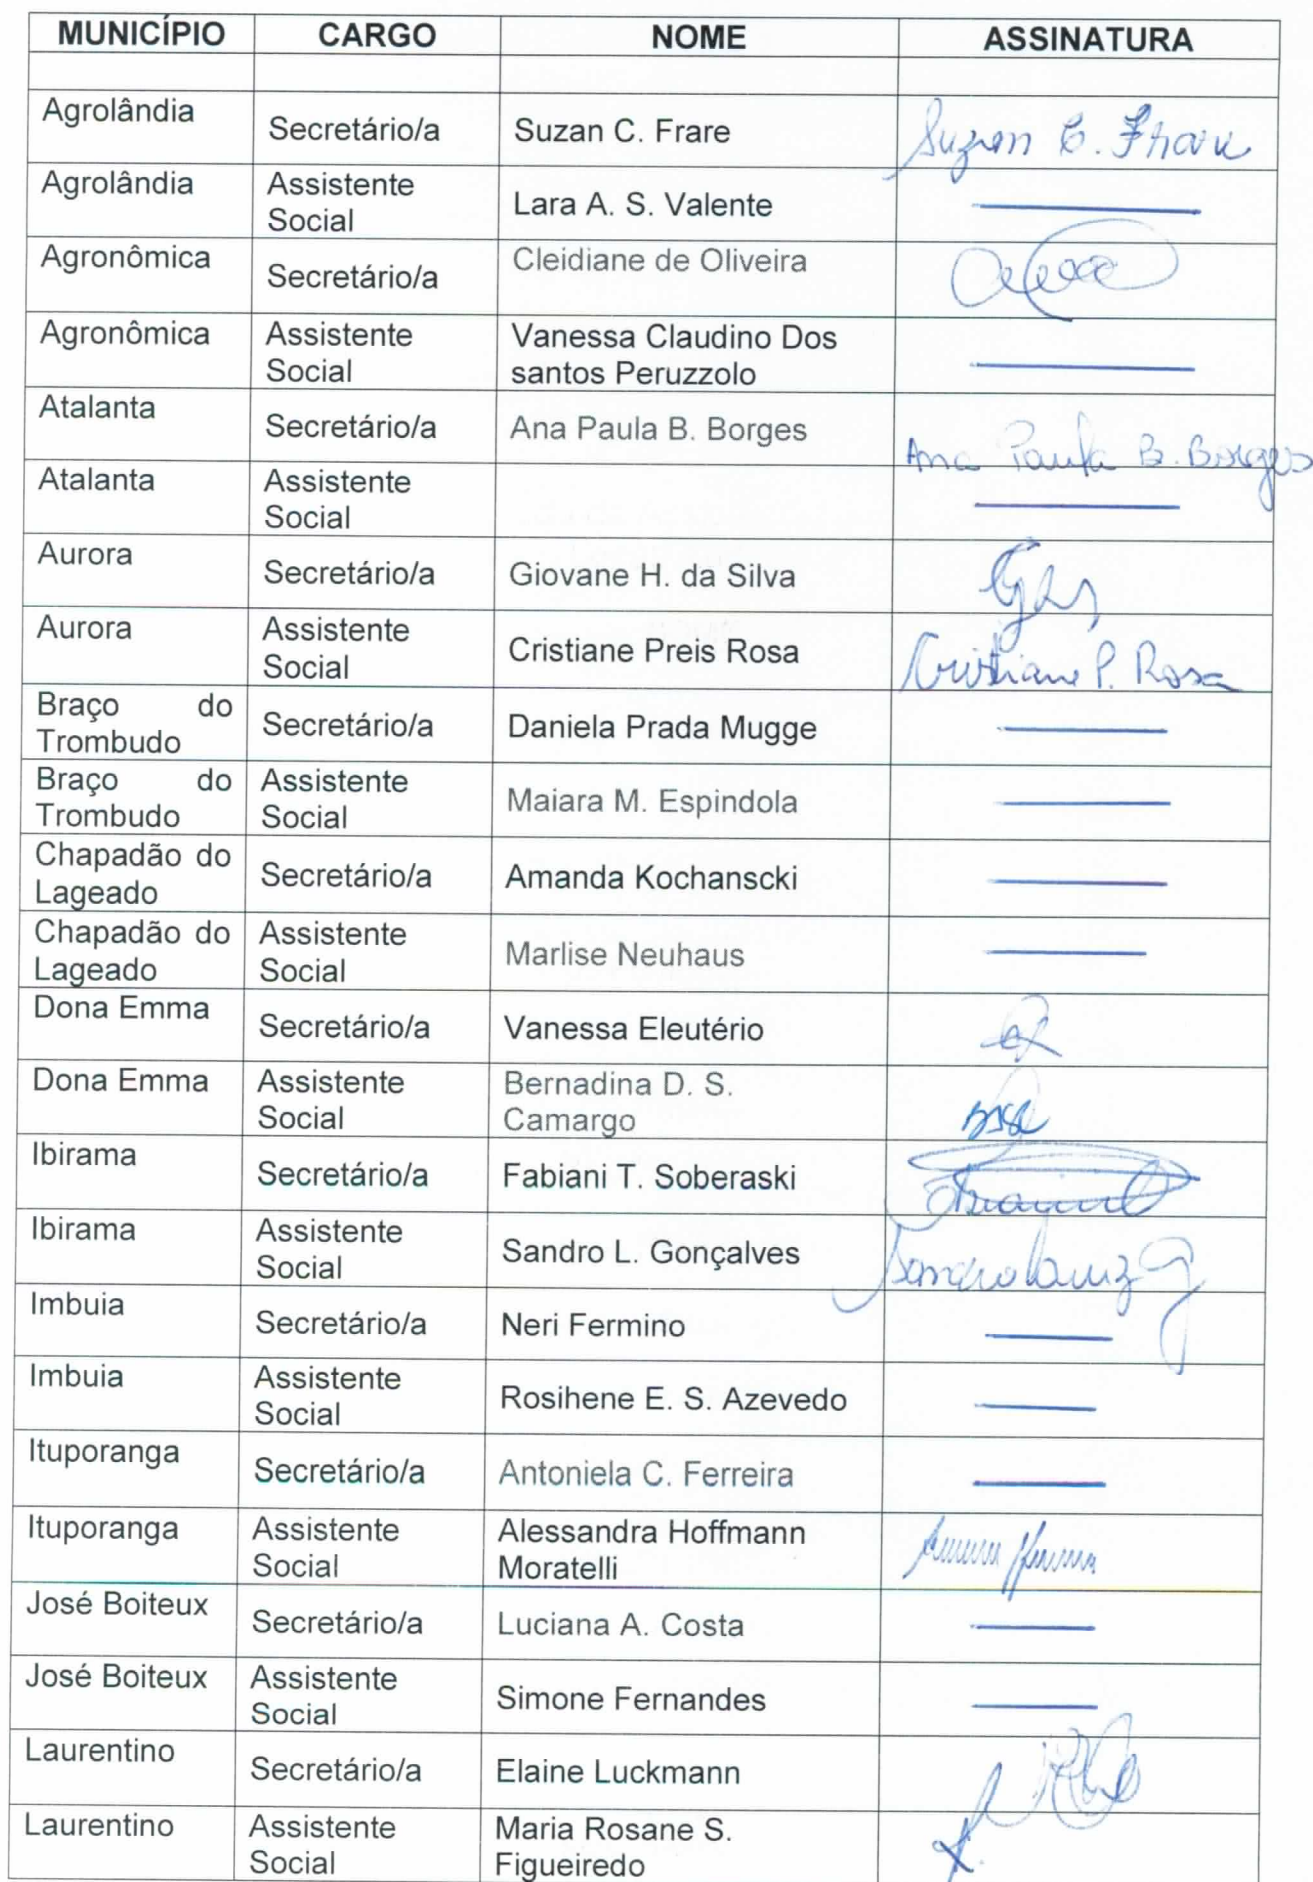 MUNICÍPIO CARGO NOME ASSINATURA
Agrolândia Secretário/a Suzan C. Frare Suzan C. Frare
Agrolândia Assistente Lara A. S. Valente
Social
Agronômica Secretário/a Cleidiane de Oliveira
Agronômica Assistente Vanessa Claudino Dos
Social santos Peruzzolo
Atalanta Secretário/a Ana Paula B. Borges Ana Paula B. Borges
Atalanta Assistente
Social
Aurora Secretário/a Giovane H. da Silva
Aurora Assistente Cristiane Preis Rosa Cristiane P. Rosa
Social
Braço do Secretário/a Daniela Prada Mugge
Trombudo
Braço do Assistente Maiara M. Espindola
Trombudo Social
Chapadão do Secretário/a Amanda Kochanscki
Lageado
Chapadão do Assistente Marlise Neuhaus
Lageado Social
Dona Emma Secretário/a Vanessa Eleutério
Dona Emma Assistente Bernadina D. S.
Social Camargo
Ibirama Secretário/a Fabiani T. Soberaski
Ibirama Assistente Sandro L. Gonçalves Sandro Luiz G
Social
Imbuia Secretário/a Neri Fermino
Imbuia Assistente Rosihene E. S. Azevedo
Social
Ituporanga Secretário/a Antoniela C. Ferreira
Ituporanga Assistente Alessandra Hoffmann
Social Moratelli
José Boiteux Secretário/a Luciana A. Costa
José Boiteux Assistente Simone Fernandes
Social
Laurentino Secretário/a Elaine Luckmann
Laurentino Assistente Maria Rosane S.
Social Figueiredo